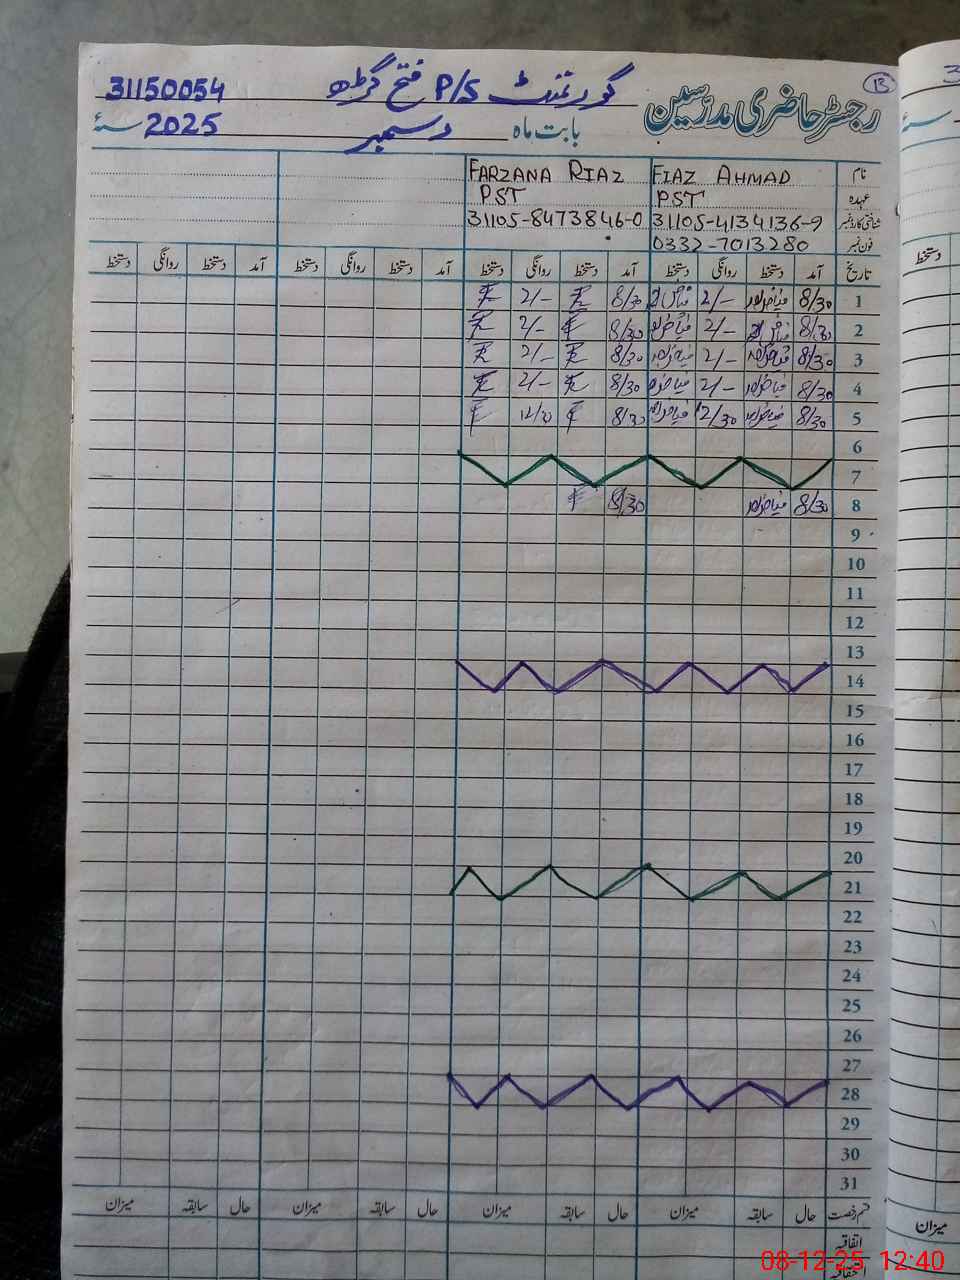 رجسٹر حاضری مدرسین گورنمنٹ P/S فتح گڑھ 31150054
13
بابت ماہ دسمبر 2025 سنۂ
نام FIAZ AHMAD FARZANA RIAZ
عہدہ PST PST
شناختی کارڈ نمبر 31105-4134136-9 31105-8473846-0
فون نمبر 0332-7013280
تاریخ آمد دستخط روانگی دستخط آمد دستخط روانگی دستخط آمد دستخط روانگی دستخط آمد دستخط روانگی دستخط
1 8/30 2/- 8/30 2/-
2 8/30 2/- 8/30 2/-
3 8/30 2/- 8/30 2/-
4 8/30 2/- 8/30 2/-
5 8/30 12/30 8/30 12/30
6
7
8 8/30 8/30
9
10
11
12
13
14
15
16
17
18
19
20
21
22
23
24
25
26
27
28
29
30
31
قسم رخصت حال سابقہ میزان حال سابقہ میزان حال سابقہ میزان حال سابقہ میزان
اتفاقیہ
دستخط
میزان
08-12-25 12:40